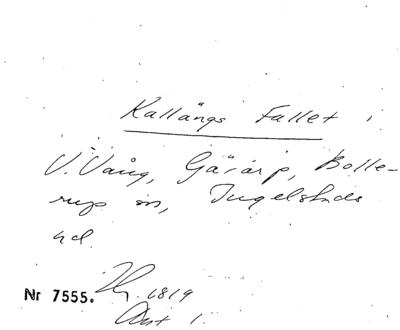 Kallängs Fallet i
V. Vång, Gärarp, Bolle-
rup sn, Ingelstads
hd.
Nr 7555. 1819